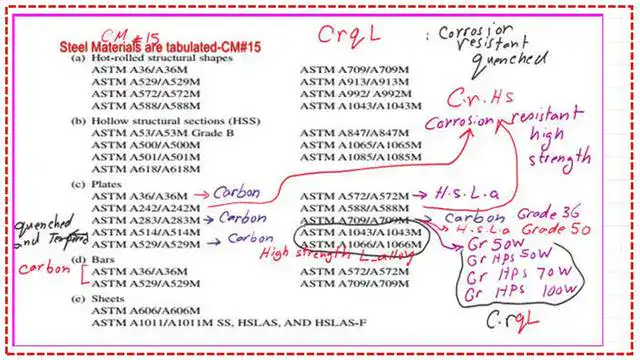 CM # 15
CrqL : Corrosion
resistant
quenched
Steel Materials are tabulated-CM#15
(a) Hot-rolled structural shapes
ASTM A36/A36M ASTM A709/A709M
ASTM A529/A529M ASTM A913/A913M
ASTM A572/A572M ASTM A992/A992 M
ASTM A588/A588M ASTM A1043/A1043M
C.r.Hs
Corrosion resistant
high
strength
(b) Hollow structural sections (HSS)
ASTM A53/A53M Grade B ASTM A847/A847M
ASTM A500/A500M ASTM A1065/A1065M
ASTM A501/A501M ASTM A1085/A1085M
ASTM A618/A618M
(c) Plates
ASTM A36/A36M → Carbon ASTM A572/A572M → H.S.L.a
ASTM A242/A242M ASTM A588/A588M
ASTM A283/A283M → Carbon ASTM A709/A709M → Carbon Grade 36
→ H.S.L.a Grade 50
quenched and Tempered ASTM A514/A514M ASTM A1043/A1043M
ASTM A529/A529M → Carbon ASTM A1066/A1066M
High strength L_alloy
Gr 50W
Gr HPS 50W
Gr HPS 70W
Gr HPS 100W
C.rqL
(d) Bars
carbon [ ASTM A36/A36M ASTM A572/A572M
ASTM A529/A529M ASTM A709/A709M
(e) Sheets
ASTM A606/A606M
ASTM A1011/A1011M SS, HSLAS, AND HSLAS-F